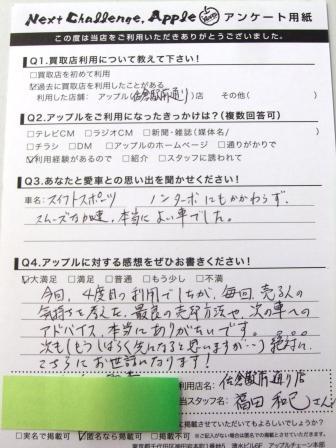 Next Challenge, Apple アンケート用紙
この度は当店をご利用いただきありがとうございました。
Q1.買取店利用について教えて下さい!
□買取店を初めて利用
☑過去に買取店を利用したことがある
利用した店舗: アップル( )店 その他( )
Q2.アップルをご利用になったきっかけは?(複数回答可)
□テレビCM □ラジオCM □新聞・雑誌(媒体名/ )
□チラシ □DM □アップルのホームページ □通りがかりで
☑利用経験があるので □紹介 □スタッフに誘われて
Q3.あなたと愛車との思い出を聞かせください!
車名: スイフトスポーツ ノンターボにもかかわらず、
スムーズな加速、本当によい車でした。
Q4.アップルに対する感想をぜひお書きください!
☑大満足 □満足 □普通 □もう少し □不満
今回、4度目の利用でしたが、毎回、売る人の
気持ちを考えた、最良の売却方法や、次の車への
アドバイス、本当にありがたいです。
次も(もうしばらく先になると思いますが…)絶対に、
こちらにお世話になります!
利用店名:
当スタッフ名: 福田 和己さん
てもよろしいでしょうか?
□実名で掲載可 ☑匿名なら掲載可 □掲載不可
アップルチェーン本部